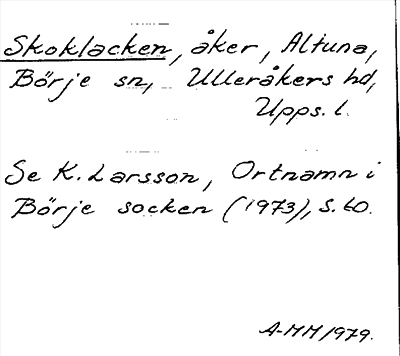 Skoklacken, åker, Altuna,
Börje sn, Ulleråkers hd,
Upps. l.
Se K. Larsson, Ortnamn i
Börje socken (1973), s. 60.
A-MM 1979.